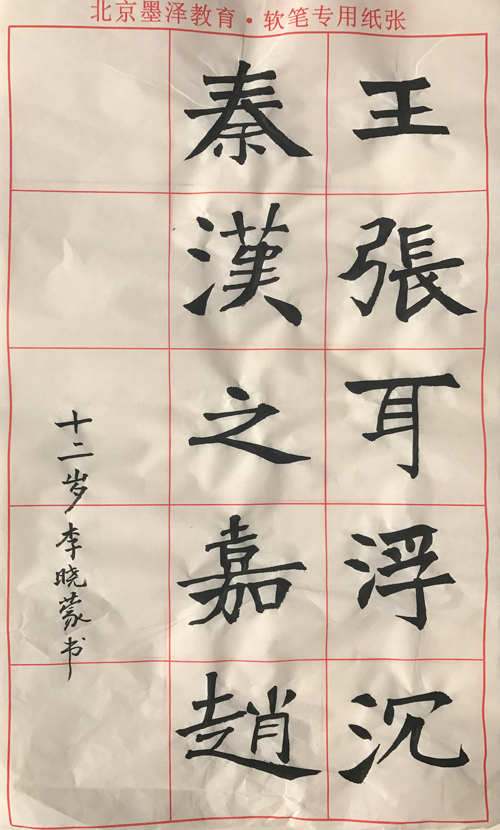 北京墨泽教育·软笔专用纸张
王張耳浮沉
秦漢之嘉趙
十二岁李晓蒙书